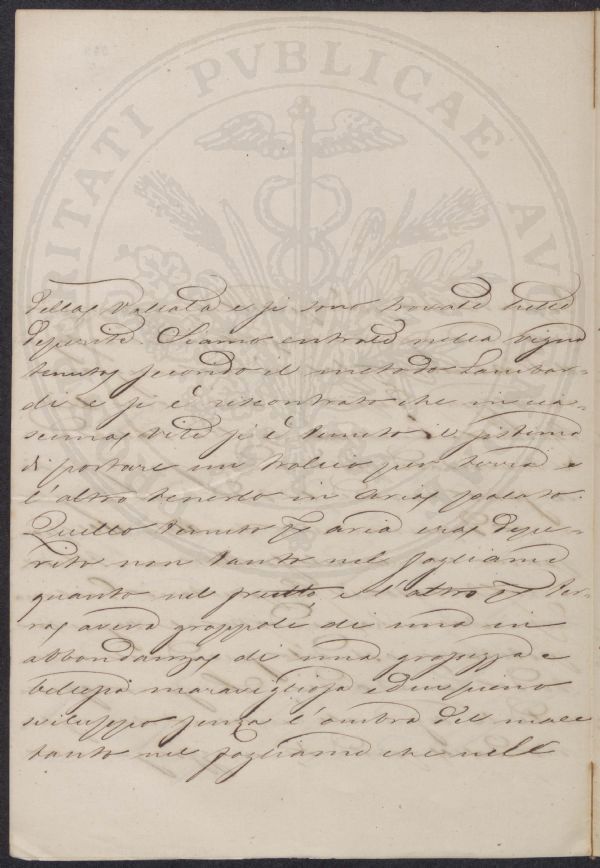 PROSPERITATI PVBLICAE AVGENDAE
della vallata e si sono trovate tutte
deperite. Siamo entrati nella vigna
tenuta secondo il metodo Lambar-
di e si è riscontrato che in cia-
scuna vite si è tenuto il sistema
di portare un tralcio per terra e
l'altro tenerlo in aria palato.
Quello tenuto p aria era depe-
rito non tanto nel fogliame
quanto nel frutto, e l'altro p ter-
ra aveva grappoli di una in
abbondanza di una grossezza e
bellezza maravigliosa ed in pieno
sviluppo senza l'ombra del male
tanto nel fogliame che nelle